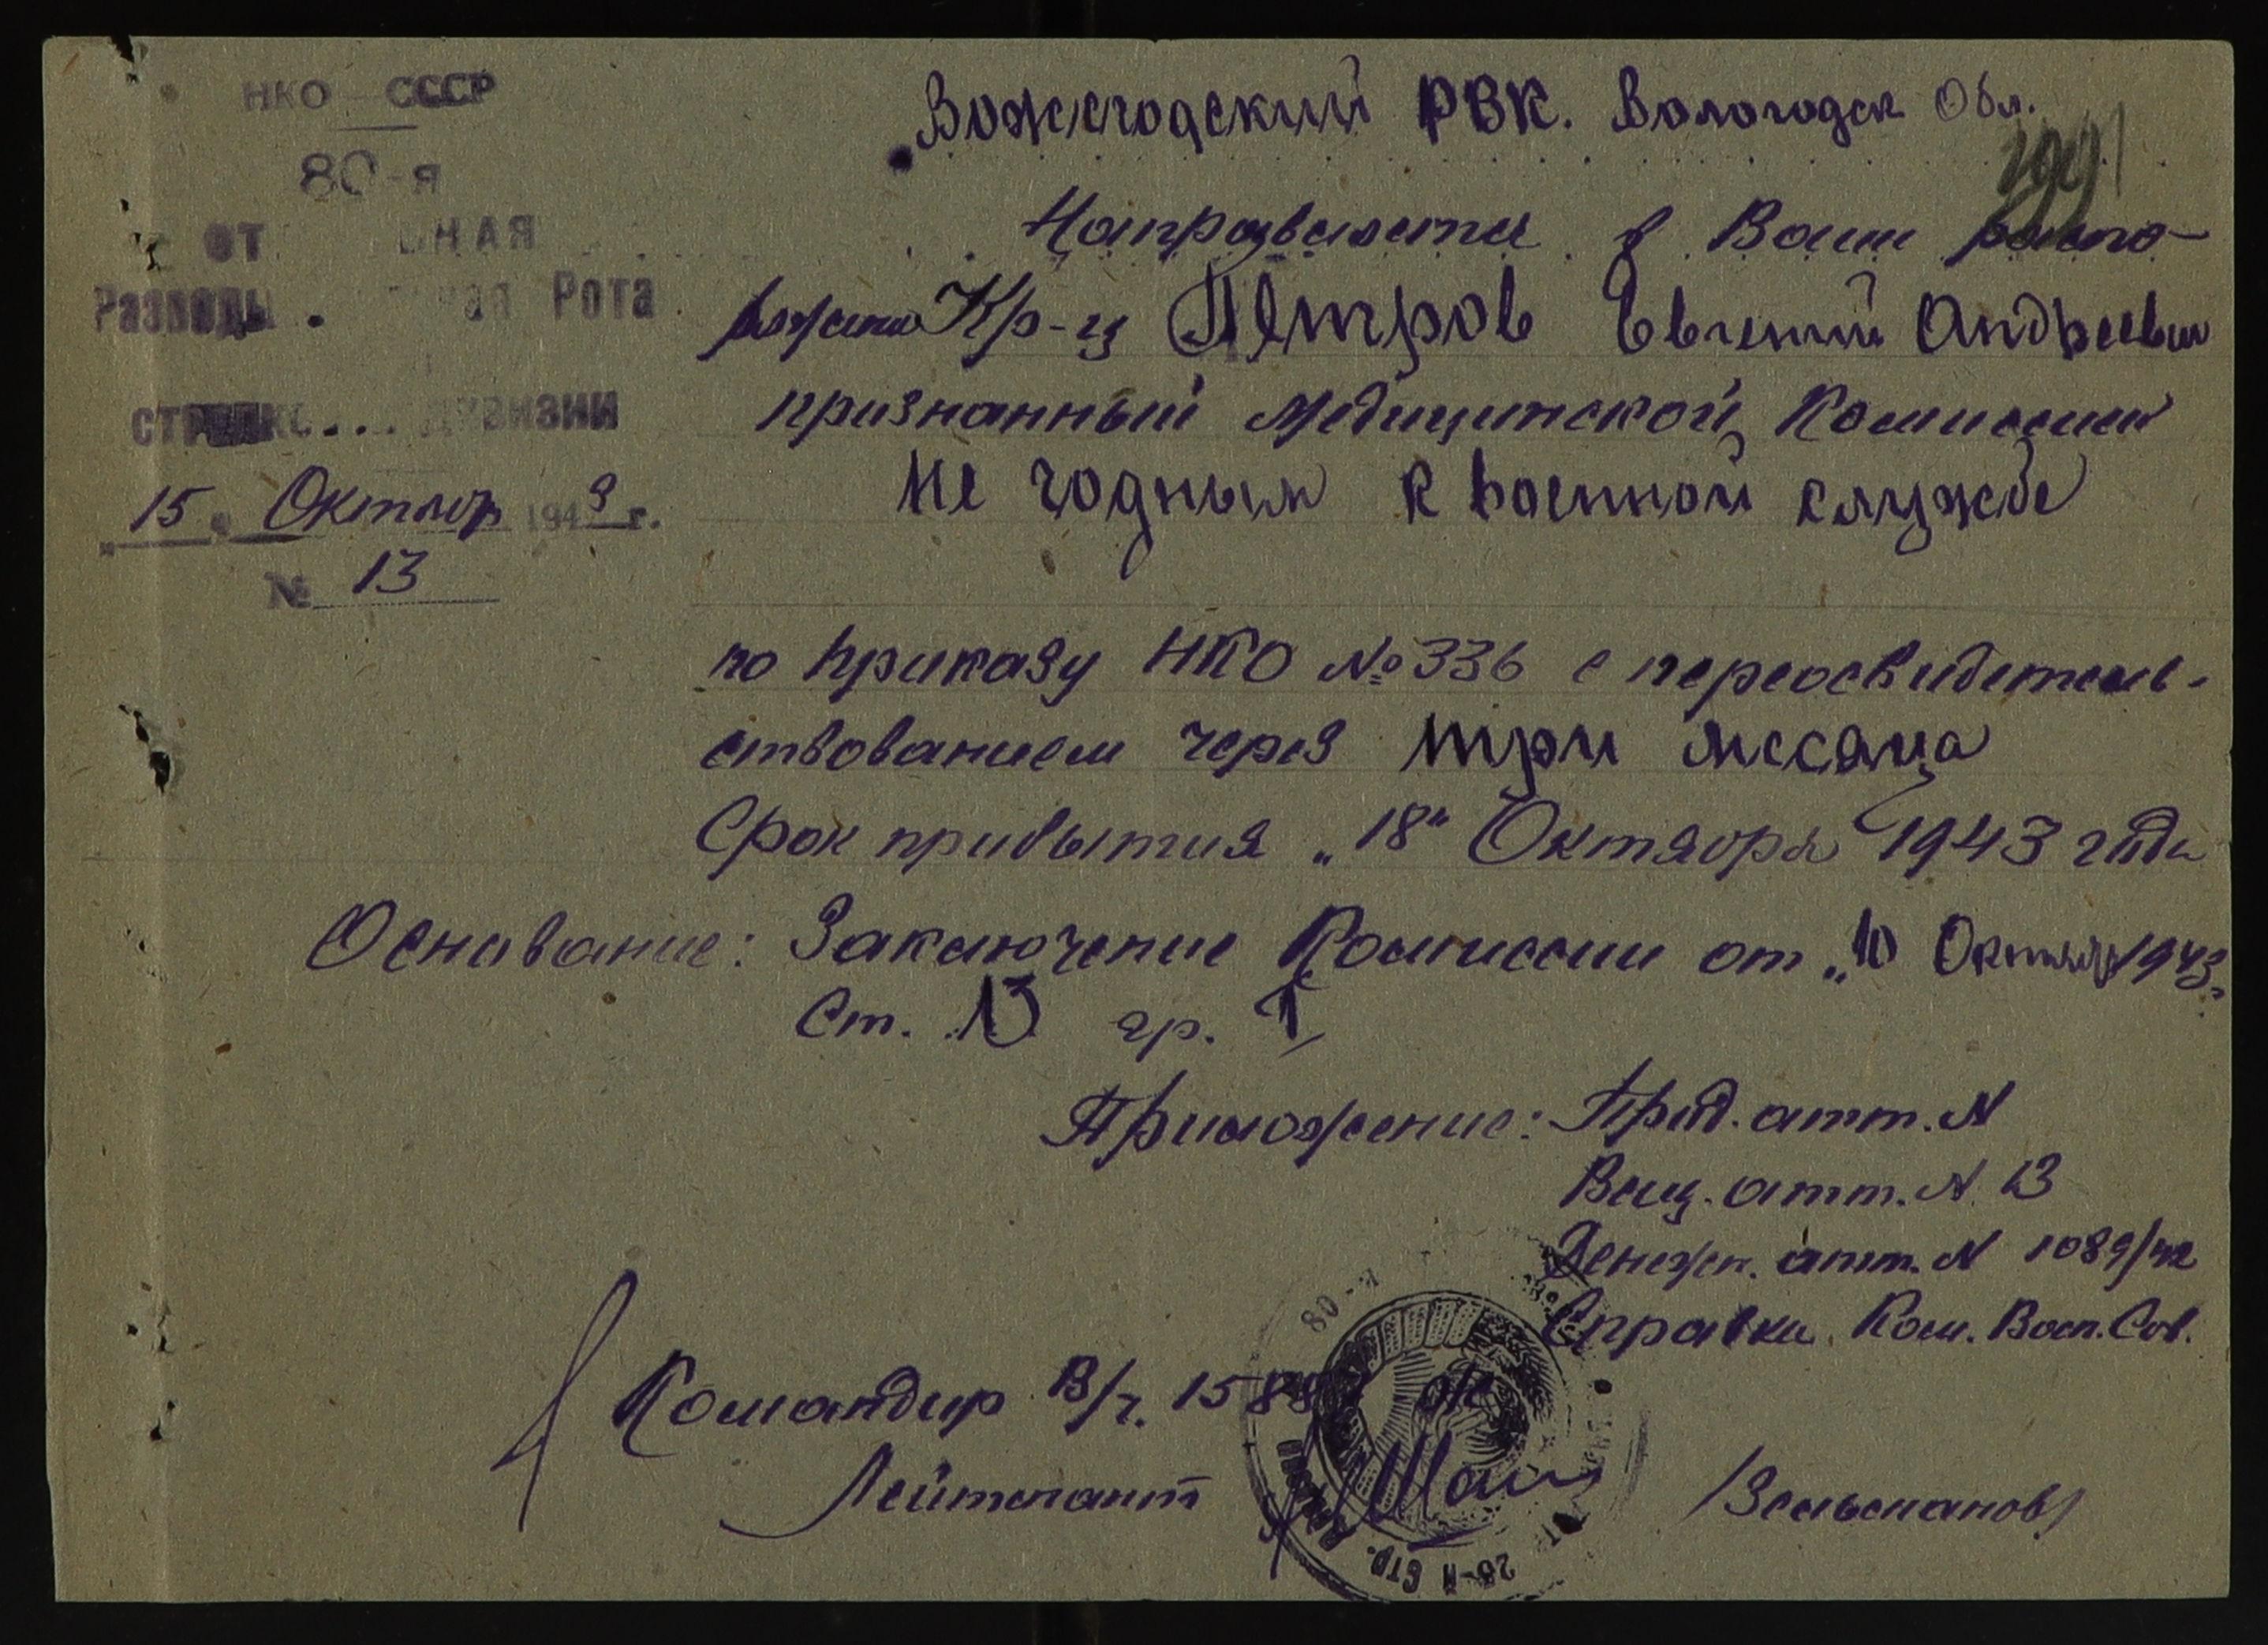 НКО СССР
80-я
от ьная
Рота
стрелко дивизии
15 Октябр 1943 г.
№ 13
Вожегодский РВК. Вологодск Обл.
Направляется в Ваше распо-
ряжение Кр-ц Петров Евгений Андреевич
признанный медицинской Комиссией
не годным к военной службе
по приказу НКО №336 с переосвидетель-
ствованием через три месяца
Срок прибытия „18" Октября 1943 года
Основание: Заключение Комиссии от „10 Октября 1943
Ст. 13 гр. I
Приложение: Прод. атт. N
Вещ. атт. N 13
Денежн. атт. N 1089/42
Справка Ком.
Командир В/ч.
Лейтенант
80-я
28-й стр.